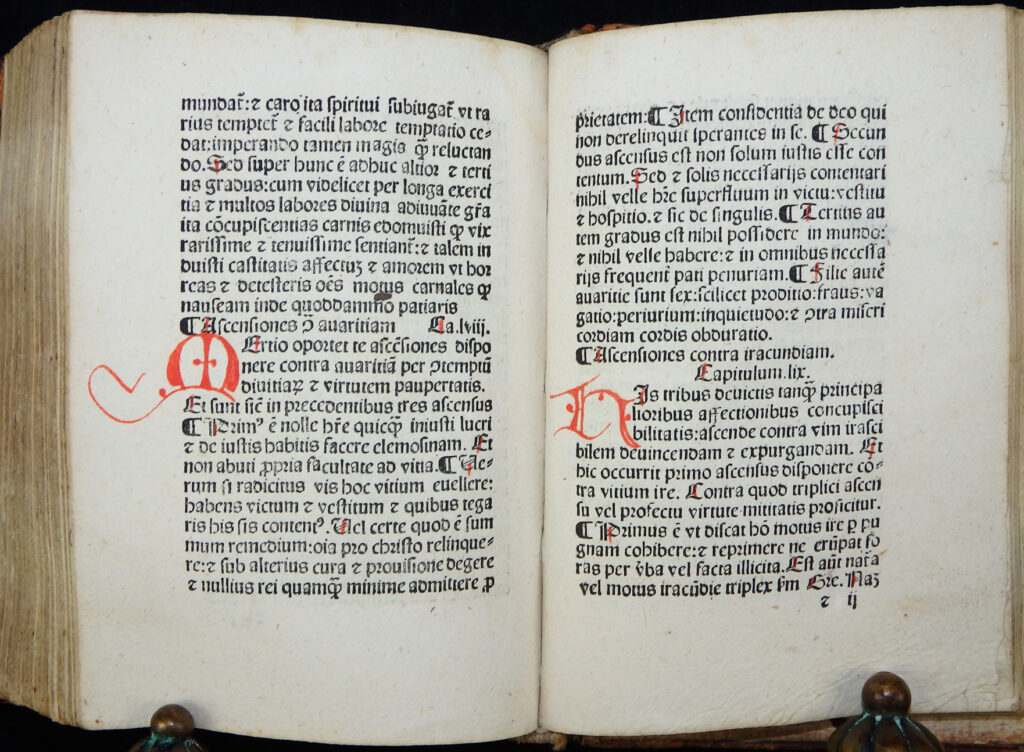 mundat᷑: ⁊ caro ita spiritui subiugat᷑ vt ra
rius temptet᷑ ⁊ facili labore temptatio ce⸗
dat: imperando tamen magis q̄ꝫ reluctan
do. Sed super hunc ē adhuc altior ⁊ terti
us gradus: cum videlicet per longa exerci
tia ⁊ multos labores diuina adiuuāte gr̄a
ita cōcupiscentias carnis edomuisti qꝫ vix
rarissime ⁊ tenuissime sentiant᷑: ⁊ talem in
duisti castitatis affectuꝫ ⁊ amorem vt hor
reas ⁊ detesteris oēs motus carnales qꝫ
nauseam inde quoddammō patiaris
¶ Ascensiones ꝯ̄ auaritiam Ca. lviij.
Tertio oportet te ascēsiones dispo
nere contra auaritiā per ꝯtemptū
diuitiaꝝ ⁊ virtutem paupertatis.
Et sunt sic̄ in precedentibus tres ascensus
¶ Primꝰ ē nolle hr̄e quicqꝫ iniusti lucri
⁊ de iustis habitis facere elemosinam. Et
non abuti ꝓpria facultate ad vitia. ¶ Ue⸗
rum si radicitus vis hoc vitium euellere:
habens victum ⁊ vestitum ⁊ quibus tega
ris his sis contentꝰ. Uel certe quod ē sum
mum remedium: oīa pro christo relinque⸗
re: ⁊ sub alterius cura ⁊ prouisione degere
⁊ nullius rei quamqꝫ minime admittere ꝓ
prietatem: ¶ Item confidentia de deo qui
non derelinquit sperantes in se. ¶ Secun
dus ascensus est non solum iustis esse con
tentum. Sed ⁊ solis necessarijs contentari
nihil velle hr̄e superfluum in victu: vestitu
⁊ hospitio. ⁊ sic de singulis. ¶ Tertius au
tem gradus est nihil possidere in mundo:
⁊ nihil velle habere: ⁊ in omnibus necessa
rijs frequent᷑ pati penuriam. ¶ Filie autē
auaritie sunt sex: scilicet proditio: fraus: va
gatio: periurium: inquietudo: ⁊ ꝯtra miseri
cordiam cordis obduratio.
¶ Ascensiones contra iracundiam.
Capitulum. lix.
His tribus deuictis tanqꝫ principa
lioribus affectionibus concupisci
bilitatis: ascende contra vim irasci
bilem deuincendam ⁊ expurgandam. Et
hic occurrit primo ascensus disponere cō⸗
tra vitium ire. Contra quod triplici ascen
su vel profectu virtute mititatis proficitur.
¶ Primus ē vt discat hō motus ire ꝑ pu
gnam cohibere: ⁊ reprimere ne erūpat fo
ras per v̄ba vel facta illicita. Est aūt nat᷑a
vel motus iracūdie triplex ẜm Gre. Naꝫ
⁊ ij